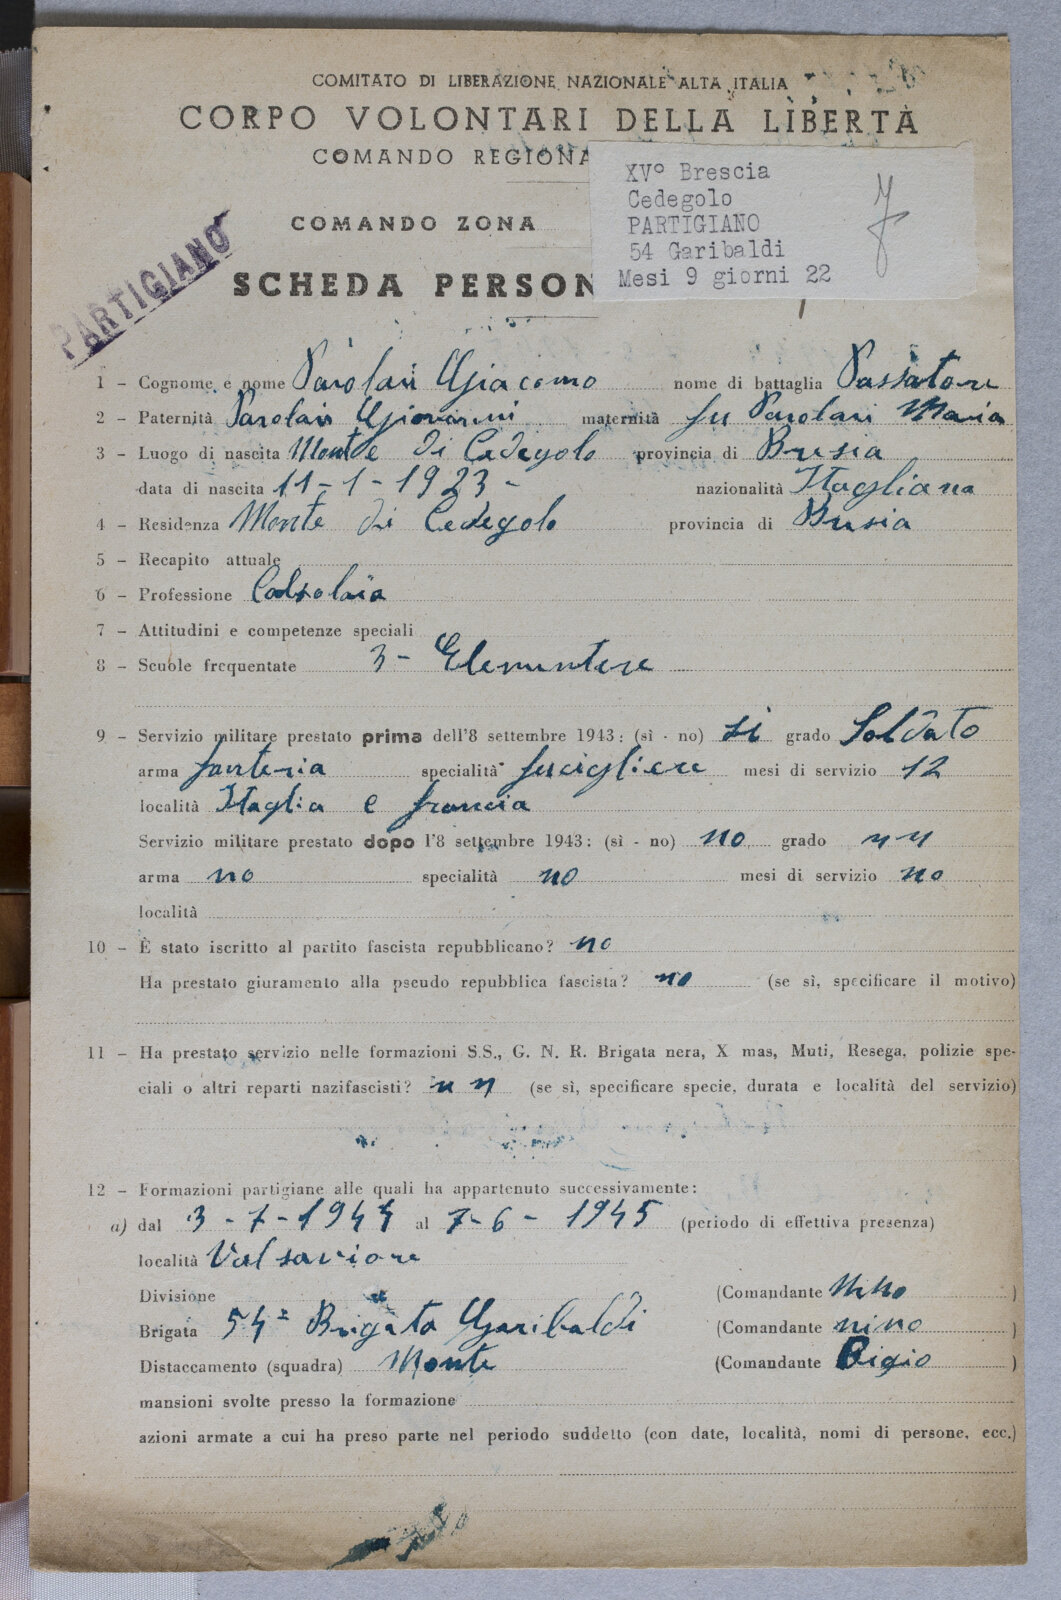 COMITATO DI LIBERAZIONE NAZIONALE ALTA ITALIA
CORPO VOLONTARI DELLA LIBERTÀ
COMANDO REGIONA
XV° Brescia
Cedegolo
PARTIGIANO
54 Garibaldi
Mesi 9 giorni 22
COMANDO ZONA
PARTIGIANO
SCHEDA PERSON
1 - Cognome e nome Parolari Giacomo nome di battaglia Passatore
2 - Paternità Parolari Giovanni maternità fu Parolari Maria
3 - Luogo di nascita Monte di Cedegolo provincia di Bresia
data di nascita 11-1-1923- nazionalità Itagliana
4 - Residenza Monte di Cedegolo provincia di Bresia
5 - Recapito attuale
6 - Professione Calsolaio
7 - Attitudini e competenze speciali
8 - Scuole frequentate 3- Elementere
9 - Servizio militare prestato prima dell'8 settembre 1943: (sì - no) si grado Soldato
arma fanteria specialità fucigliere mesi di servizio 12
località Itaglia e francia
Servizio militare prestato dopo l'8 settembre 1943: (sì - no) no grado
arma no specialità no mesi di servizio no
località
10 - È stato iscritto al partito fascista repubblicano? no
Ha prestato giuramento alla pseudo repubblica fascista? no (se sì, specificare il motivo)
11 - Ha prestato servizio nelle formazioni S.S., G. N. R. Brigata nera, X mas, Muti, Resega, polizie spe-
ciali o altri reparti nazifascisti? (se sì, specificare specie, durata e località del servizio)
12 - Formazioni partigiane alle quali ha appartenuto successivamente:
a) dal 3-7-1944 al 7-6-1945 (periodo di effettiva presenza)
località Valsaviore
Divisione (Comandante Nino )
Brigata 54ª Brigata Garibaldi (Comandante nino )
Distaccamento (squadra) Monte (Comandante Bigio )
mansioni svolte presso la formazione
azioni armate a cui ha preso parte nel periodo suddetto (con date, località, nomi di persone, ecc.)